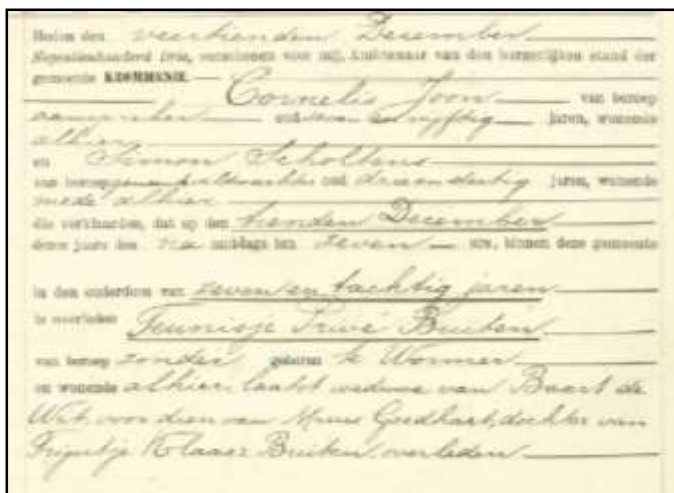 Heden den veertienden December
Negentienhonderd drie, verschenen voor mij, Ambtenaar van den burgerlijken stand der
gemeente KROMMENIE.
Cornelis Joon van beroep
aanspreker oud zeven en vijftig jaren, wonende
alhier
en Simon Scholtens
van beroep gemeenteveldwachter oud drie en dertig jaren, wonende
mede alhier
die verklaarden, dat op den tienden December
dezes jaars des na middags ten zeven ure, binnen deze gemeente
in den ouderdom van zeven en tachtig jaren
is overleden Teunisje Privé Bruiten
van beroep zonder geboren te Wormer
en wonende alhier laatst weduwe van Baart de
Wit, voordien van Goedhart, dochter van
Trijntje Klaas Bruiten, overleden